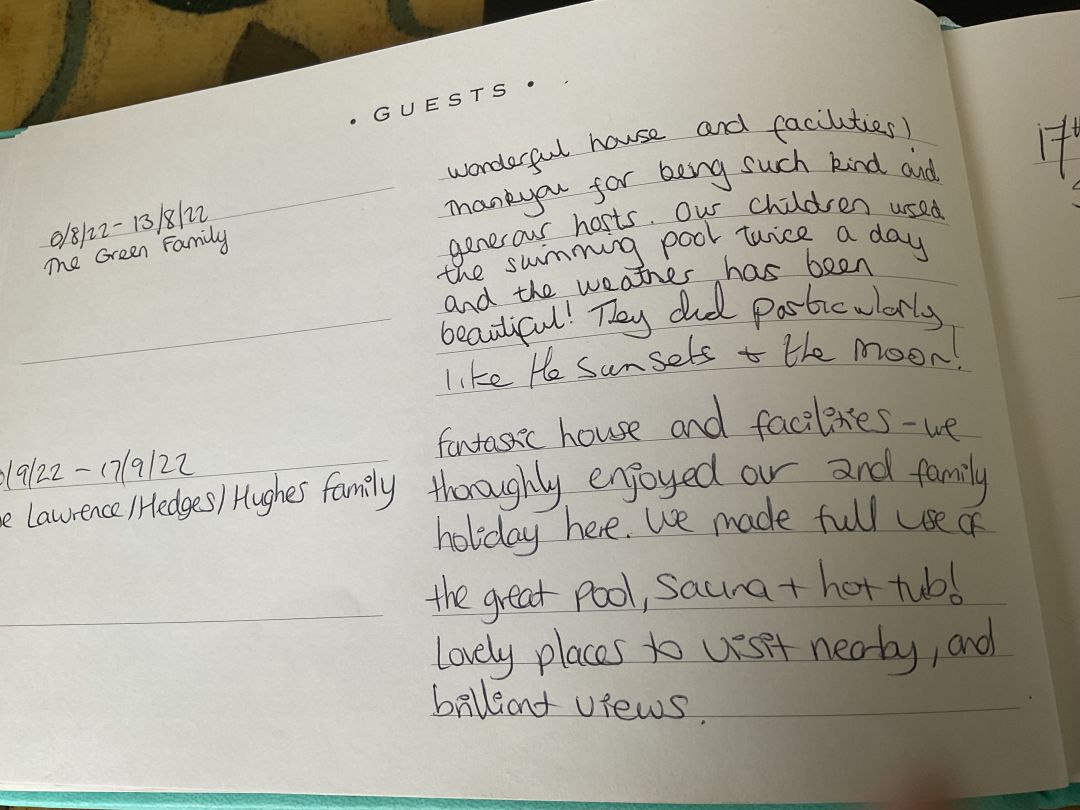 • GUESTS •
6/8/22 - 13/8/22
The Green Family
wonderful house and facilities!
Thankyou for being such kind and
generous hosts. Our children used
the swimming pool twice a day
and the weather has been
beautiful! They did particularly
like the sunsets + the moon!
/9/22 - 17/9/22
Lawrence/Hedges/Hughes family
fantastic house and facilities - we
thoroughly enjoyed our 2nd family
holiday here. We made full use of
the great pool, sauna + hot tub!
Lovely places to visit nearby, and
brilliant views.
17th